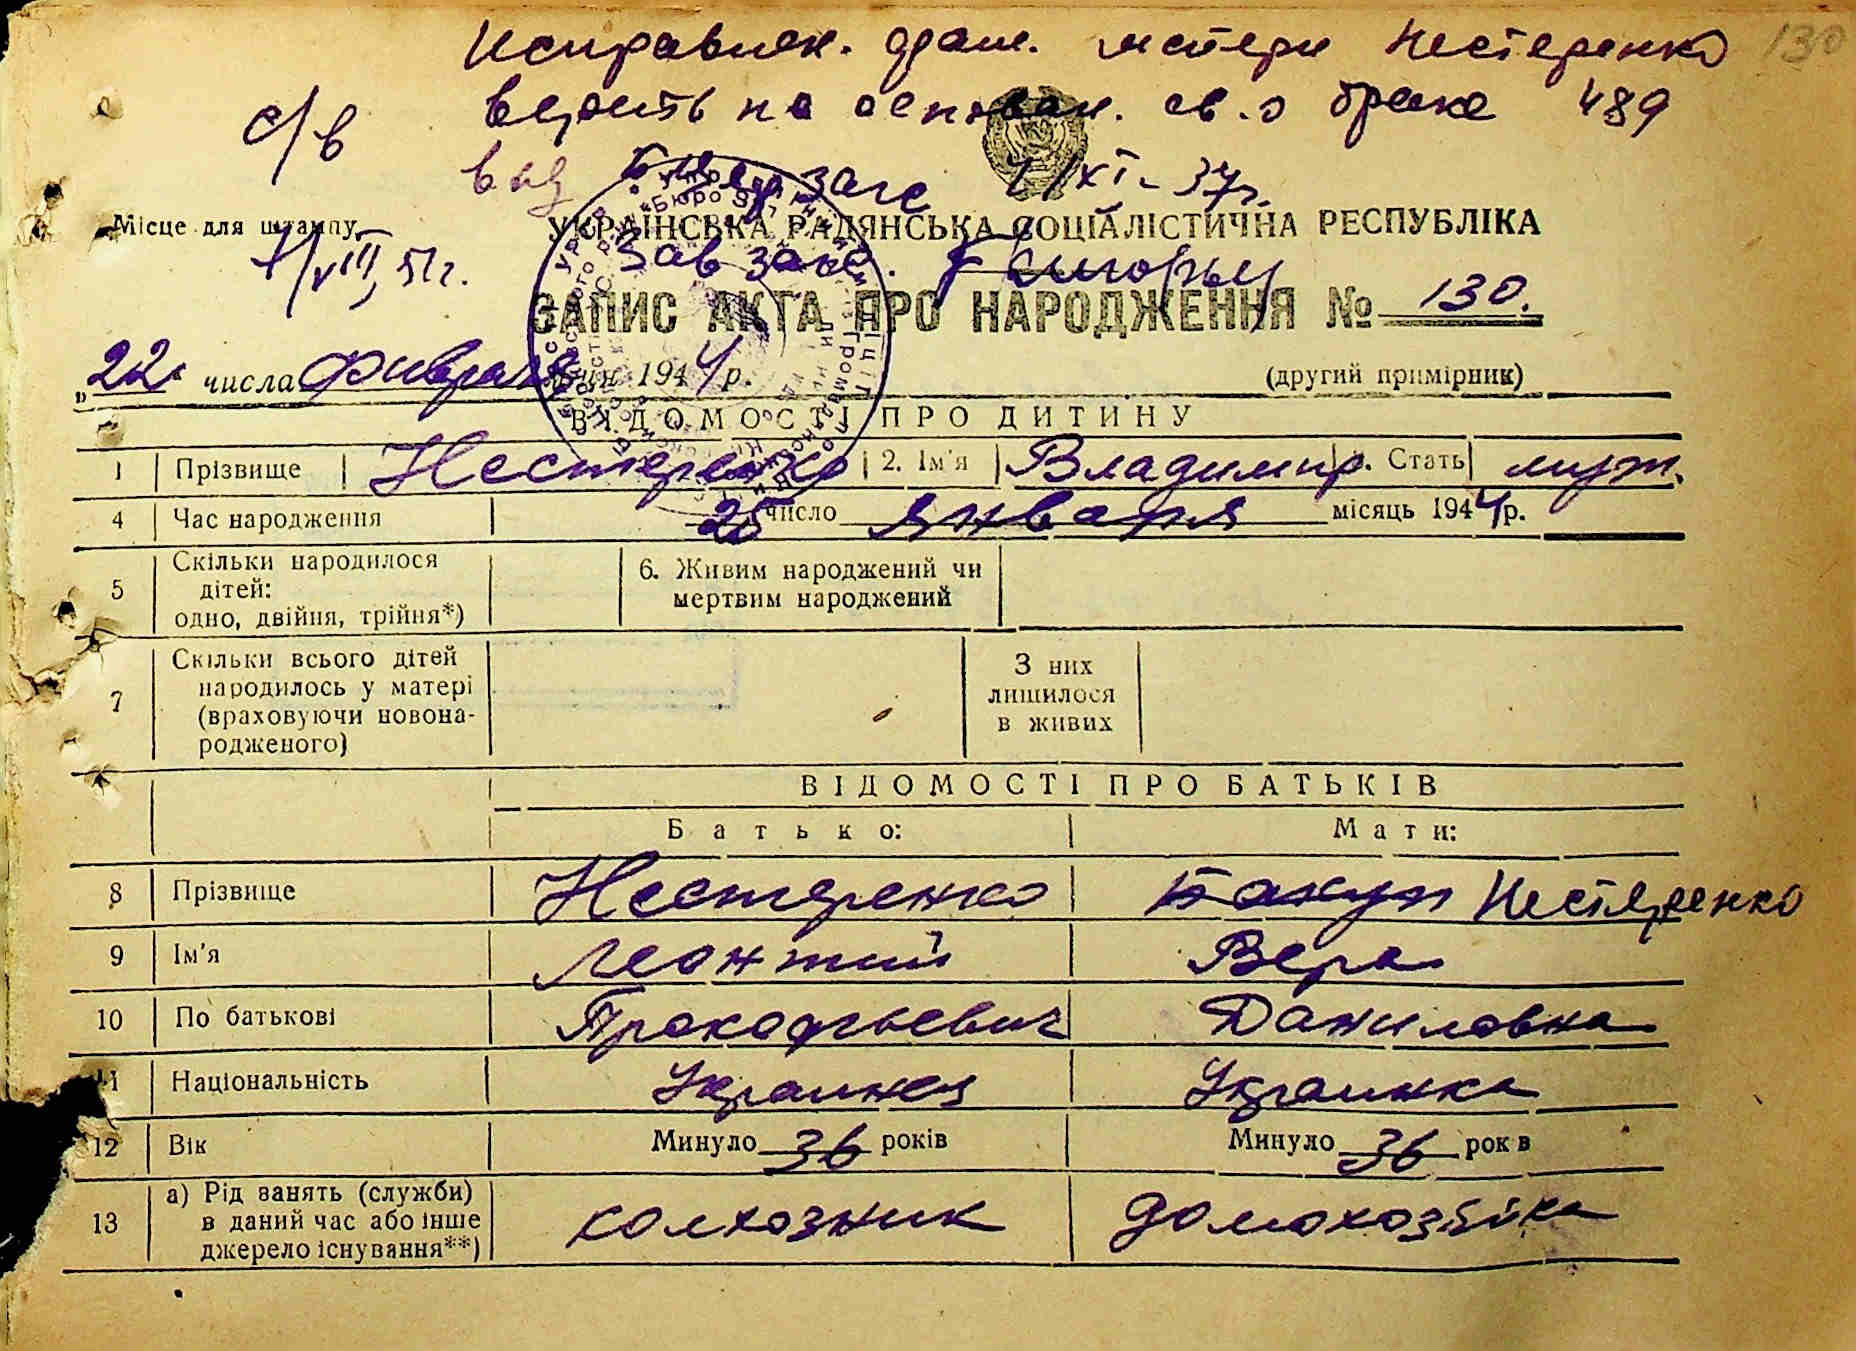 130
Исправлен. фам. матери Нестеренко
с/в верить на основан. св. о браке 489
загс 4/XI - 37г.
Місце для штампу
УКРАЇНСЬКА РАДЯНСЬКА СОЦІАЛІСТИЧНА РЕСПУБЛІКА
7/VIII, 51г. Зав загс.
ЗАПИС АКТА ПРО НАРОДЖЕННЯ № 130.
„22 числа февраля 1944 р. (другий примірник)
ВІДОМОСТІ ПРО ДИТИНУ
1 Прізвище Нестеренко 2. Ім'я Владимир. Стать муж.
4 Час народження 25 число января місяць 1944 р.
5 Скільки народилося дітей:
одно, двійня, трійня*)
6. Живим народжений чи
мертвим народжений
7 Скільки всього дітей
народилось у матері
(враховуючи новона-
родженого)
З них
лишилося
в живих
ВІДОМОСТІ ПРО БАТЬКІВ
Батько: Мати:
8 Прізвище Нестеренко Бакун Нестеренко
9 Ім'я Леонтий Вера
10 По батькові Прокофьевич Даниловна
11 Національність Украинец Украинка
12 Вік Минуло 36 років Минуло 36 рок в
13 а) Рід занять (служби)
в даний час або інше
джерело існування**)
колхозник домохозяйка